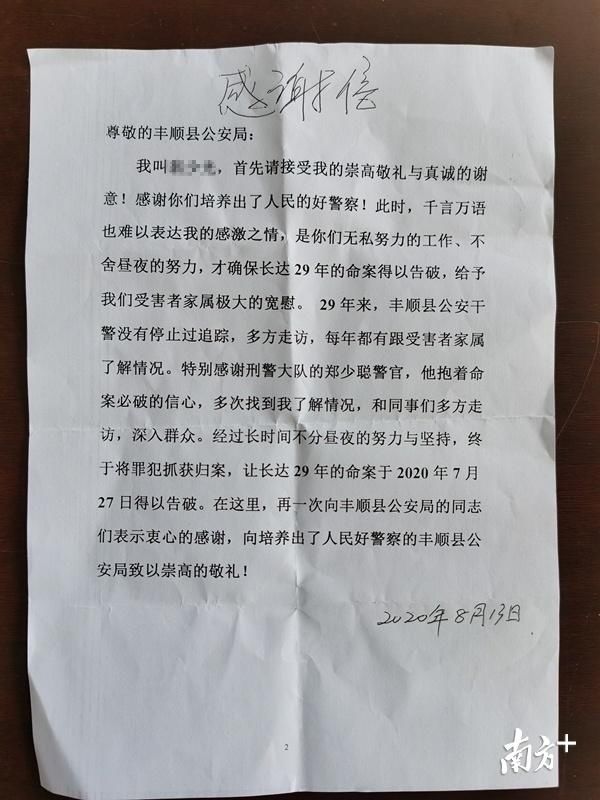 南方+
感谢信
尊敬的丰顺县公安局：
我叫，首先请接受我的崇高敬礼与真诚的谢
意！感谢你们培养出了人民的好警察！此时，千言万语
也难以表达我的感激之情，是你们无私努力的工作、不
舍昼夜的努力，才确保长达 29 年的命案得以告破，给予
我们受害者家属极大的宽慰。 29 年来，丰顺县公安干
警没有停止过追踪，多方走访，每年都有跟受害者家属
了解情况。特别感谢刑警大队的郑少聪警官，他抱着命
案必破的信心，多次找到我了解情况，和同事们多方走
访，深入群众。经过长时间不分昼夜的努力与坚持，终
于将罪犯抓获归案，让长达 29 年的命案于 2020 年 7 月
27 日得以告破。在这里，再一次向丰顺县公安局的同志
们表示衷心的感谢，向培养出了人民好警察的丰顺县公
安局致以崇高的敬礼！
2020年8月13日
2
南方+